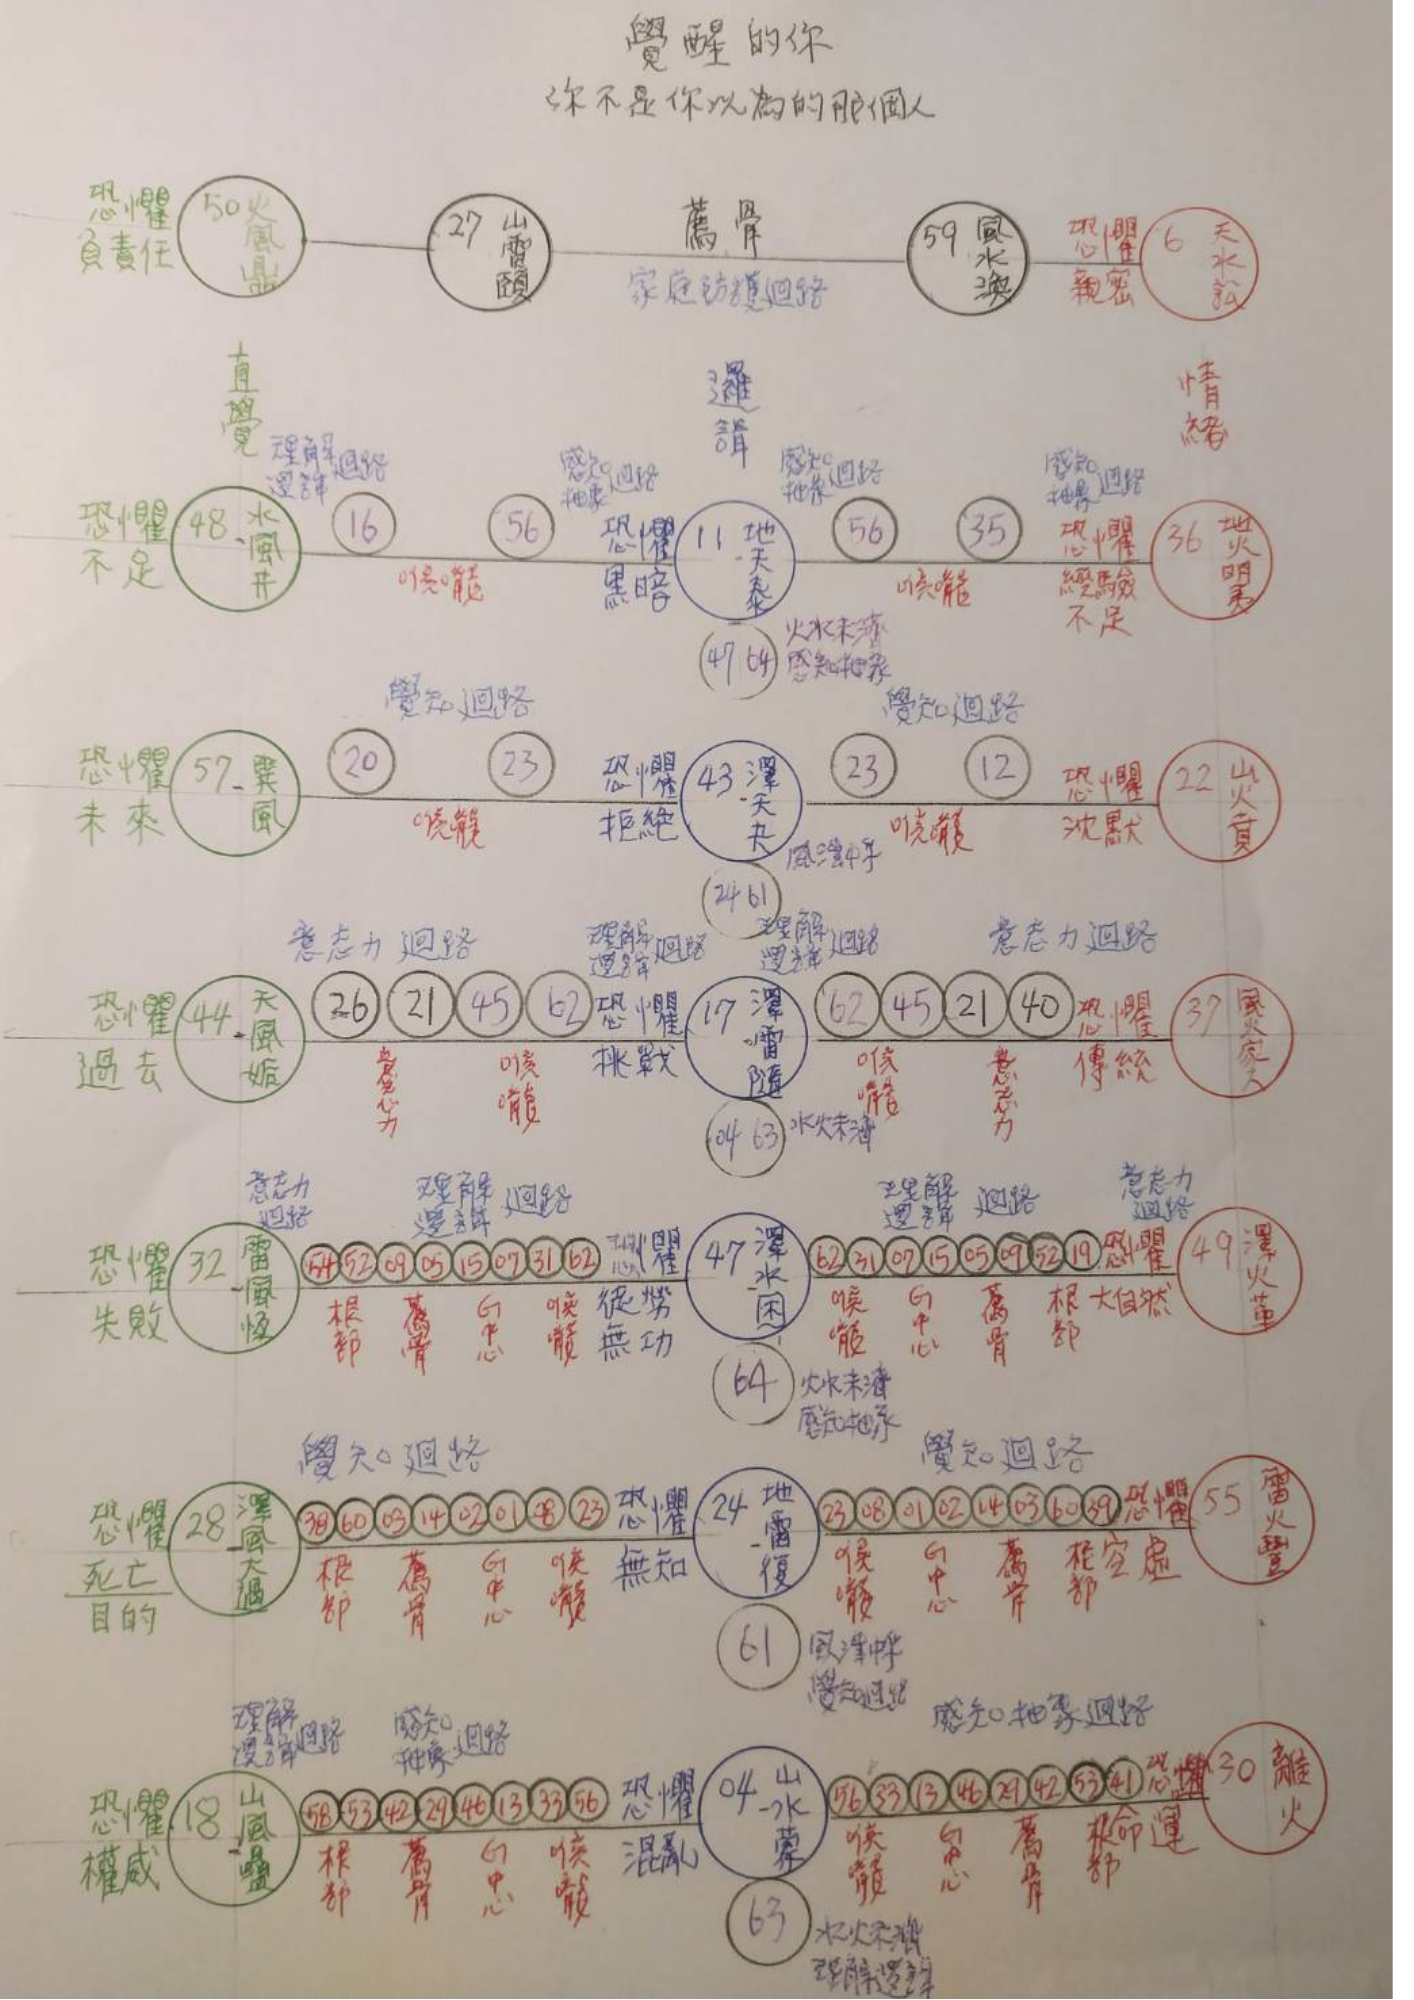 覺醒的你
你不是你以為的那個人
恐懼 負責任
50 火風鼎
27 山雷頤
薦骨
家庭防護迴路
59 風水渙
恐懼 親密
6 天水訟
直覺
邏輯
情緒
理解邏輯迴路
感知抽象迴路
感知抽象迴路
感知抽象迴路
恐懼 不足
48 水風井
16
56
喉嚨
恐懼 黑暗
11 地天泰
56
35
喉嚨
恐懼 經驗 不足
36 地火明夷
47 64
火水未濟
感知抽象
覺知迴路
覺知迴路
恐懼 未來
57 巽風
20
23
喉嚨
恐懼 拒絕
43 澤天夬
23
12
喉嚨
恐懼 沈默
22 山火賁
24 61
風澤中孚
意志力迴路
理解邏輯迴路
理解邏輯迴路
意志力迴路
恐懼 過去
44 天風姤
26 21 45 62
意志力
喉嚨
恐懼 挑戰
17 澤雷隨
62 45 21 40
喉嚨
意志力
恐懼 傳統
37 風火家人
04 63
水火未濟
意志力迴路
理解邏輯迴路
理解邏輯迴路
意志力迴路
恐懼 失敗
32 雷風恆
54 52 09 05 15 07 31 62
根部 薦骨 G中心 喉嚨
恐懼 徒勞無功
47 澤水困
62 31 07 15 05 09 52 19
喉嚨 G中心 薦骨 根部
恐懼 大自然
49 澤火革
64
火水未濟
感知抽象
覺知迴路
覺知迴路
恐懼 死亡 目的
28 澤風大過
38 60 03 14 02 01 08 23
根部 薦骨 G中心 喉嚨
恐懼 無知
24 地雷復
23 08 01 02 14 03 60 39
喉嚨 G中心 薦骨 根部
恐懼 空虛
55 雷火豐
61
風澤中孚
覺知迴路
理解邏輯迴路
感知抽象迴路
感知抽象迴路
恐懼 權威
18 山風蠱
58 53 42 29 46 13 33 56
根部 薦骨 G中心 喉嚨
恐懼 混亂
04 山水蒙
56 33 13 46 29 42 53 41
喉嚨 G中心 薦骨 根部
恐懼 命運
30 離火
63
水火未濟
理解邏輯